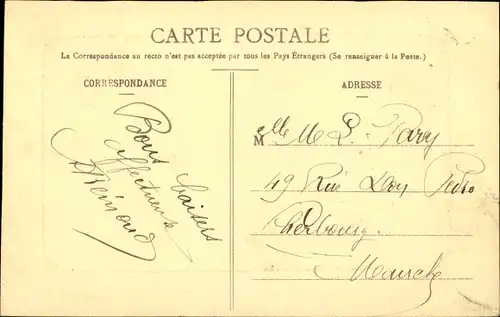 CARTE POSTALE
La Correspondance au recto n'est pas acceptée par tous les Pays Étrangers (Se renseigner à la Poste.)
CORRESPONDANCE
Bons baisers
affectueux
ADRESSE
M
49 Rue Don Pedro
Cherbourg
Manche